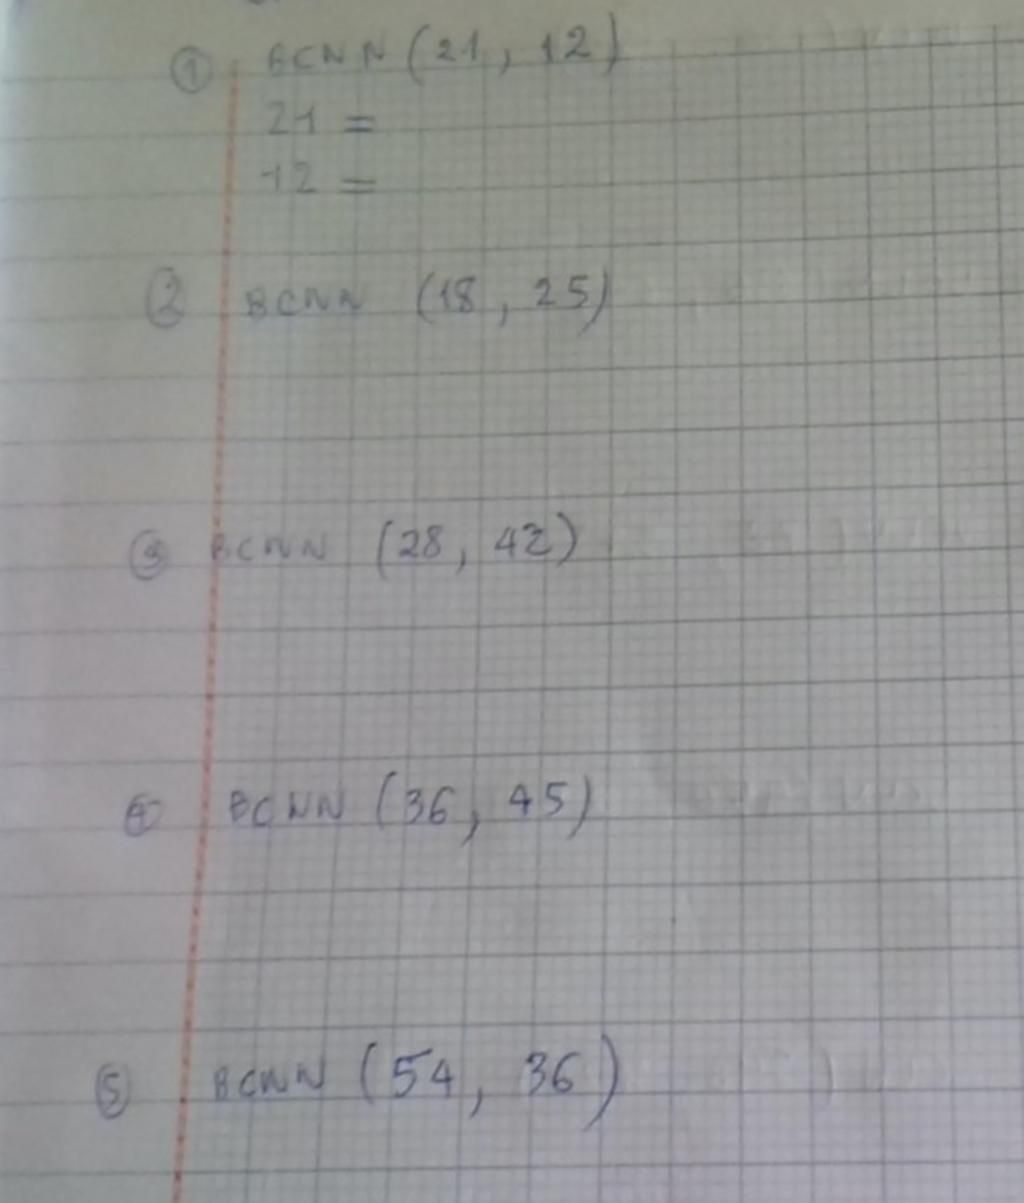 ① BCNN (21, 12)
21 =
12 =
② BCNN (18, 25)
③ BCNN (28, 42)
④ BCNN (36, 45)
⑤ BCNN (54, 36)